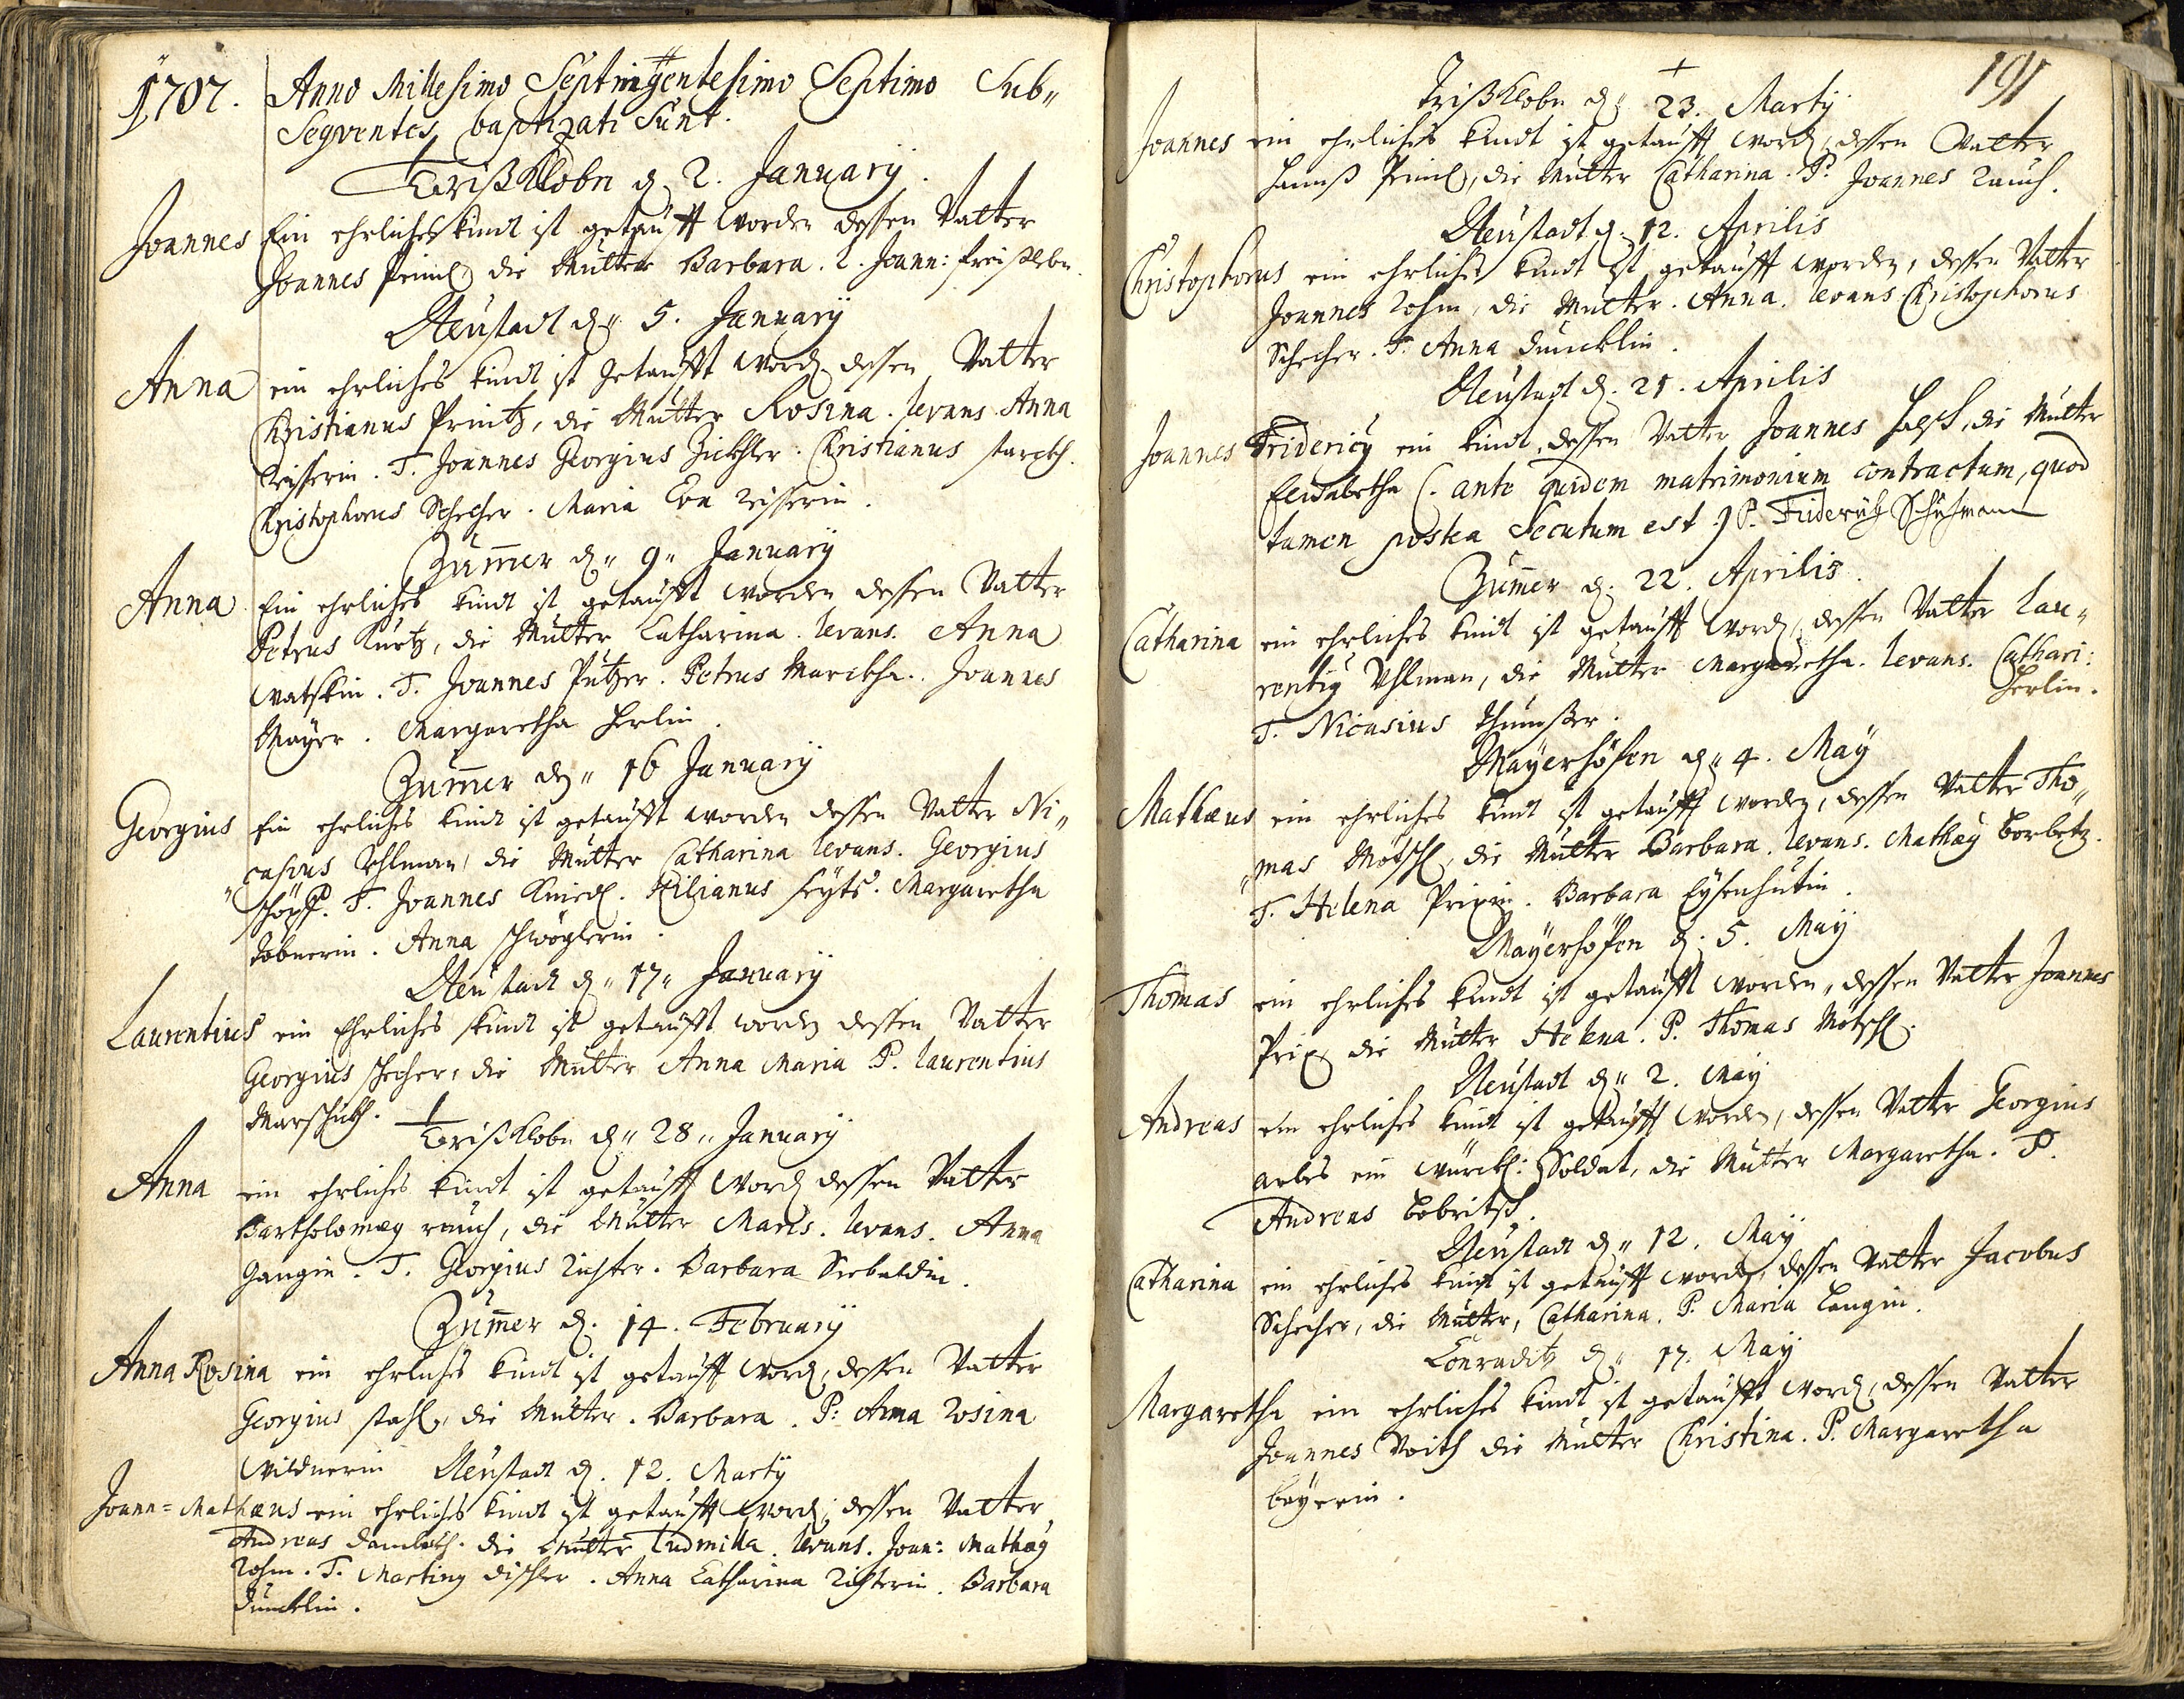 1707. Anno Millesimo Septingentesimo Septimo Sub„
Seqventes baptizati Sunt.
Trißklobn d. 2. January.
Joannes Ein ehrliches kindt ist getaufft worden dessen Vatter
Joannes die Mutter Barbara. L. Joann:
Neustadt d. 5. January
Anna ein ehrliches kindt ist getaufft word. dessen Vatter
Christianus Printz, die Mutter Rosina. levans Anna
T. Joannes Georgius Christianus starckh.
Christophorus Schecher. Maria Eva
Zum̄er d. 9. January
Anna Ein ehrliches kindt ist getaufft worden dessen Vatter
Petrus Kurtz, die Mutter Catharina. levans. Anna
T. Joannes Petrus Joannes
Mayer. Margaretha Herlin.
Zum̄er d. 16 January
Georgius Ein ehrliches kindt ist getaufft worden dessen Vatter Ni„
„casius Uhlman, die Mutter Catharina levans. Georgius
T. Joannes Kilianus Margaretha
Anna
Neustadt d. 17. January
Laurentius ein Ehrliches kindt ist getaufft worden dessen Vatter
Georgius Schecher, die Mutter Anna Maria P. Laurentius
Trißklobn d. 28. January
Anna ein ehrliches kindt ist getaufft word. dessen Vatter
Bartholomæy rauch, die Mutter Maria. levans. Anna
T. Georgius Richter. Barbara Seebaldin.
Zum̄er d. 14. February
Anna Rosina ein ehrliches kindt ist getaufft word. dessen Vatter
Georgius die Mutter. Barbara. P: Anna Rosina
Wildnerin Neustadt d. 12. Marty
Joann= Mathæus ein ehrliches kindt ist getaufft word. dessen Vatter
Andreas die Mutter Ludmilla. levans. Joan: Mathæy
T. Martiny Anna Catharina Richterin. Barbara
Duncklin.
191
Trißklobn d. 23. Marty
Joannes ein ehrliches kindt ist getaufft word. dessen Vatter
Hannß die Mutter Catharina. P. Joannes rauch.
Neustadt d. 12. Aprilis
Christophorus ein ehrliches kindt ist getaufft worden, dessen Vatter
Joannes die Mutter. Anna. levans Christophorus
Schecher. T. Anna Duncklin.
Neustadt d. 21. Aprilis
Joannes Fridericy ein kindt, dessen Vatter Joannes die Mutter
Elisabetha (. ante quidem matrimonium contractum, quod
tamen postea Secutum est .) P. Friderich Schuhmann
Zum̄er d. 22. Aprilis
Catharina ein ehrliches kindt ist getaufft word. dessen Vatter Lau„
rentiy Uhlman, die Mutter Margaretha. levans. Cathari:
Herlin.
T. Nicasius
Mayerhöfen d. 4. May
Mathæus ein ehrliches kindt ist getaufft worden, dessen Vatter Tho„
„mas Mötschl, die Mutter Barbara. levans. Mathæy
T. Helena Prixin. Barbara Eysenhutin.
Mayerhöfen d. 5. May
Thomas ein ehrliches kindt ist getaufft worden, dessen Vatter Joannes
Prix die Mutter Helena. P. Thomas Mötschl.
Neustadt d. 2. May
Andreas ein ehrliches kindt ist getaufft worden, dessen Vatter Georgius
ein Soldat, die Mutter Margaretha. P.
Andreas
Neustadt d. 12. May
Catharina ein ehrliches kindt ist getaufft worden, dessen Vatter Jacobus
Schecher, die Mutter, Catharina. P. Maria Langin.
Conraditz d. 17. May
Margaretha ein ehrliches kindt ist getaufft word. dessen Vatter
Joannes Voith die Mutter Christina. P. Margaretha
bayerin.